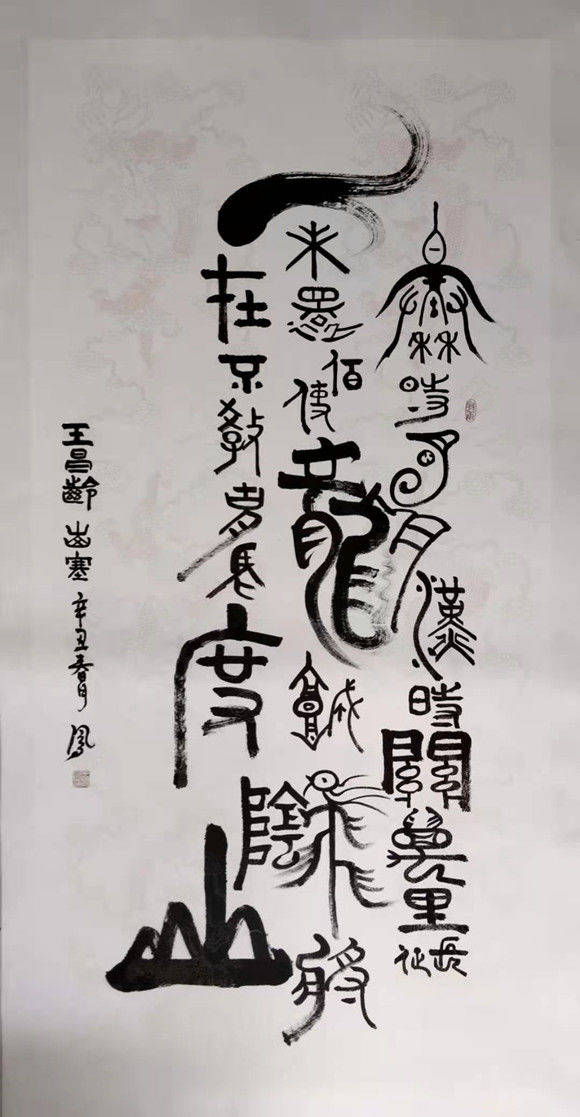 秦時明月漢時關萬里長征
人未還但使龍城飛將
在不教胡馬度陰山
王昌齡 出塞 辛丑春月 鳳